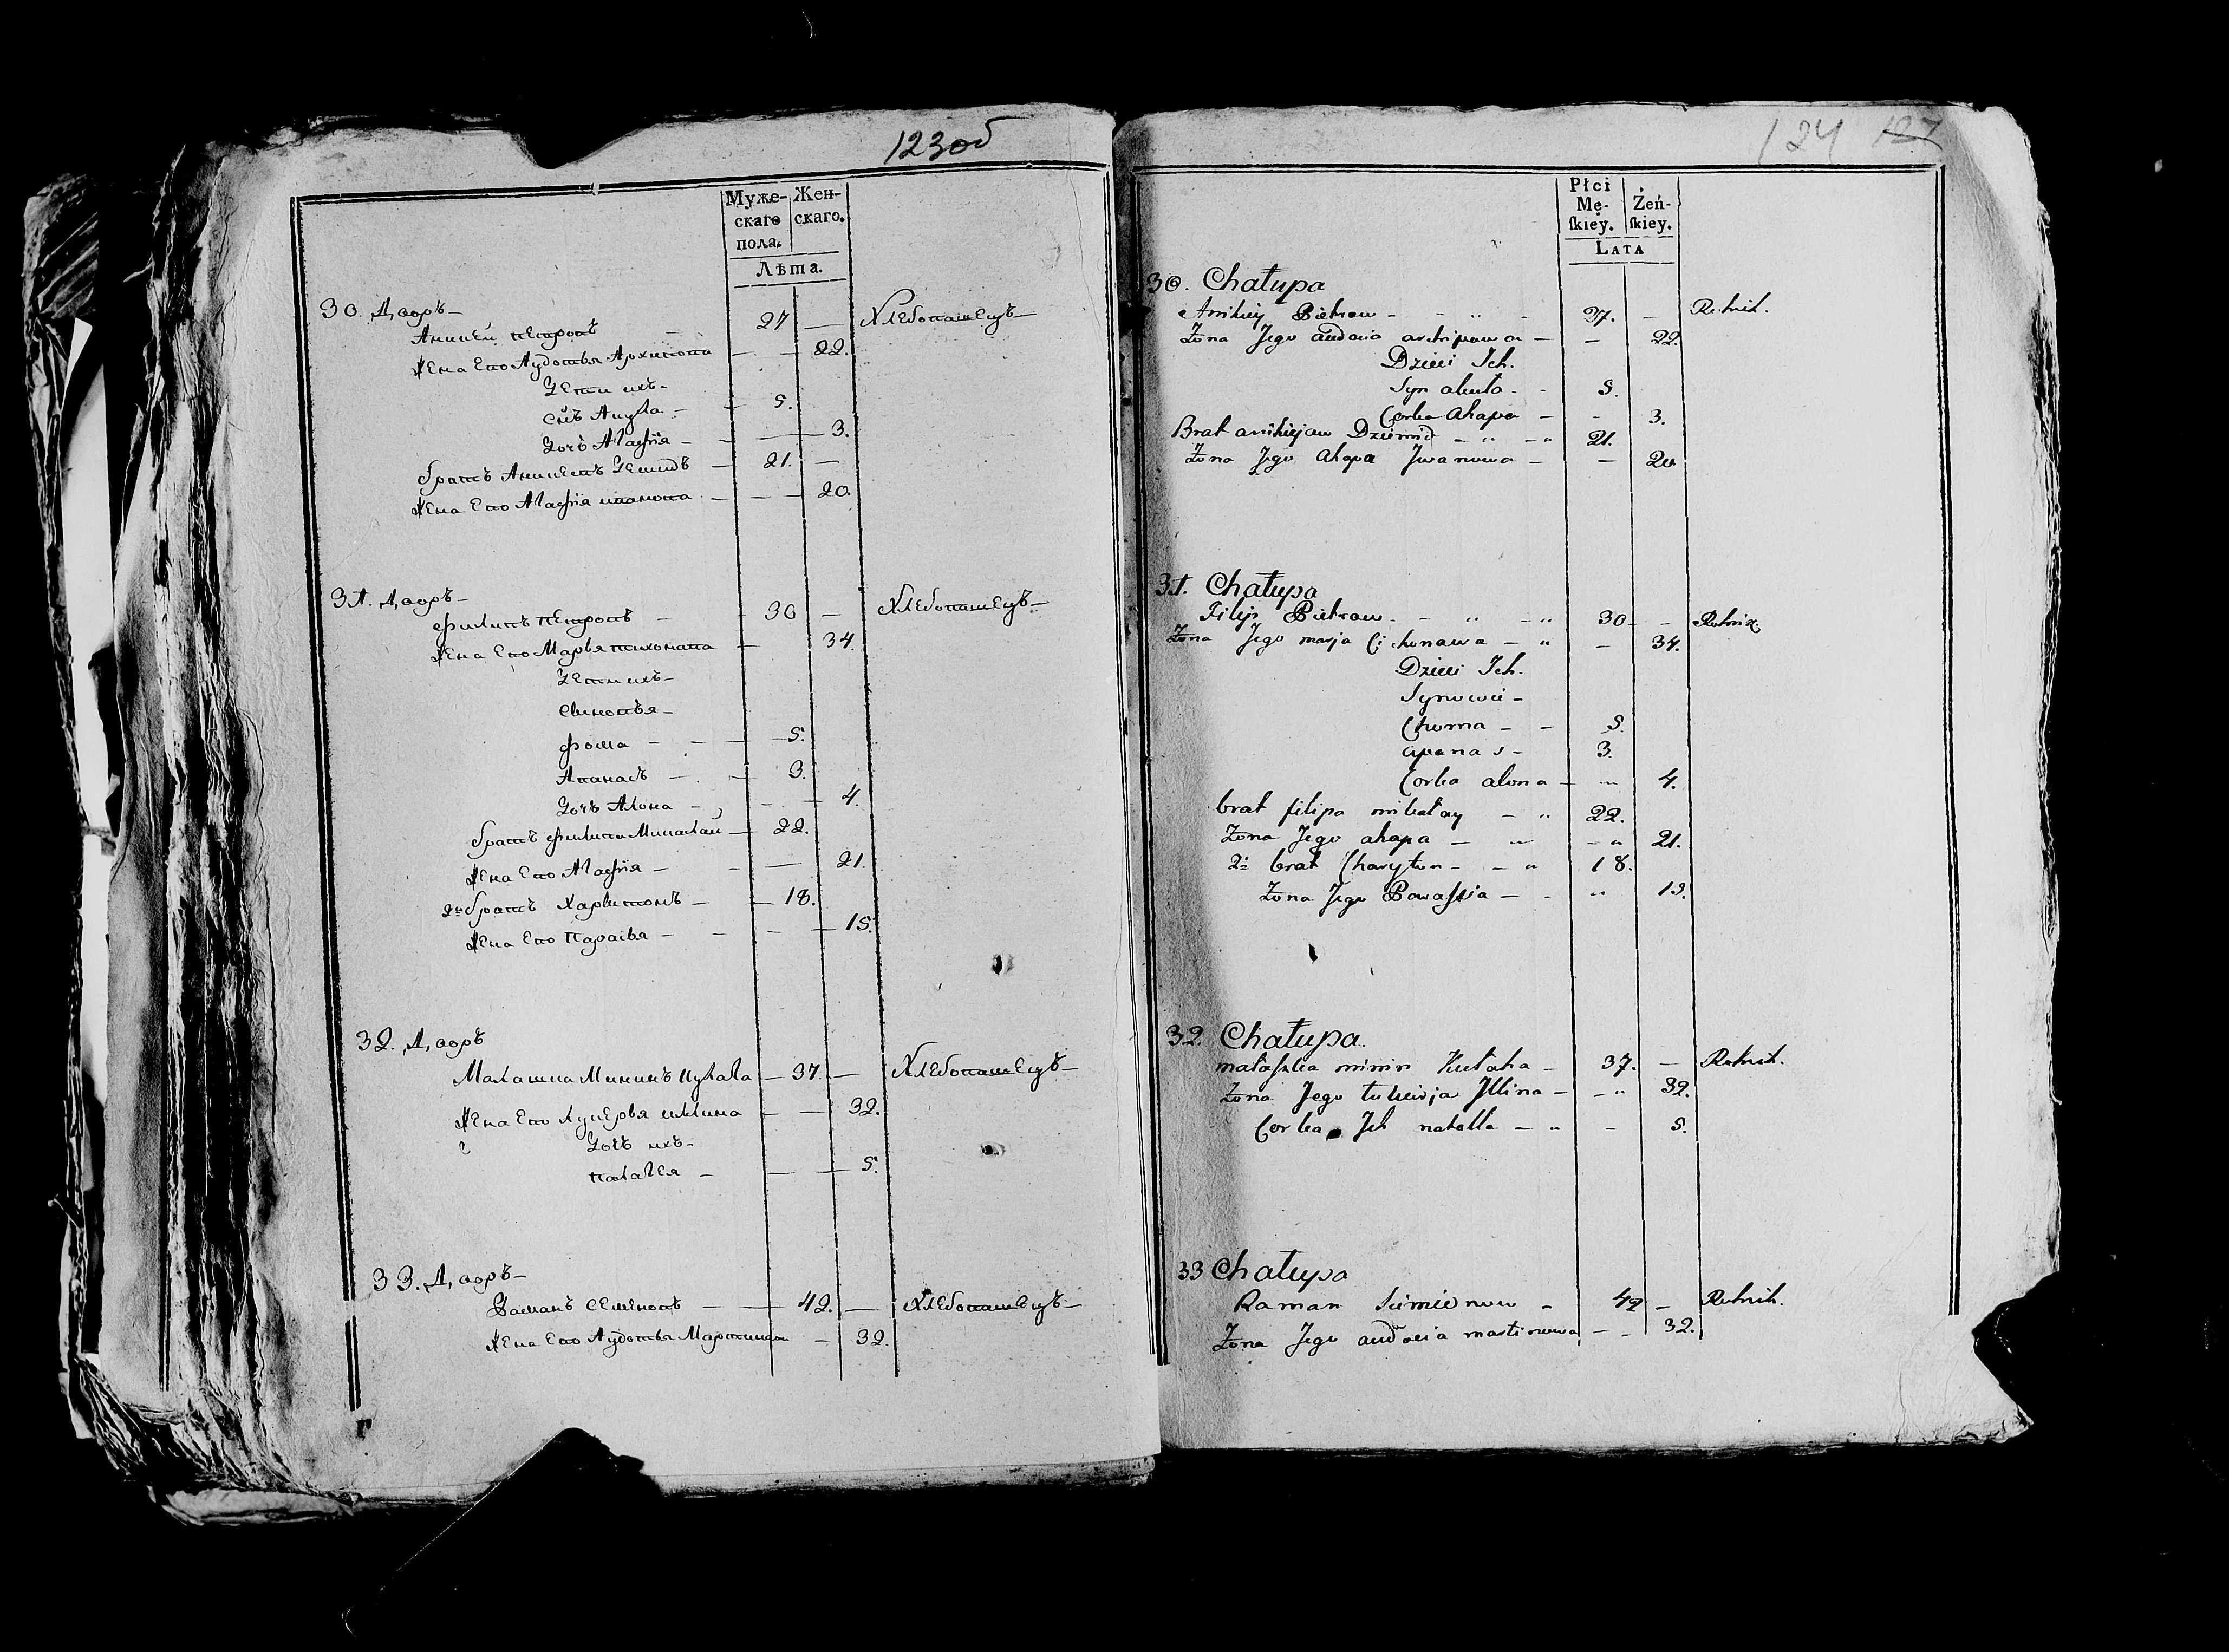 123об
Муже- Жен-
скаго скаго.
пола.
Лѣта.
30. Дворъ
Аникей Петровъ 27 — Хлебопашецъ
Жена Его Аудотья Архипова — 22.
Дети ихъ
Снъ Акула — 5.
Дочь Агафія — 3.
братъ Аникеевъ Демидъ — 21. —
Жена Его Агафія ивановa — 20.
31. Дворъ
Филипъ Петровъ — 30 — Хлебопашецъ
Жена Его Марья тихонава — 34.
Дети ихъ
Сыновья
Фома — 5.
Апанасъ — 3.
Дочь Алона — 4.
братъ Филипа Микалай — 22.
Жена Его Агафія — 21.
2й братъ Харитонъ — 18.
Жена Его Парасья — 15.
32. Дворъ
Малашка Мининъ Кулага — 37. — Хлебопашецъ
Жена Его Лукерья илина — 32.
Дочь ихъ
Наталея — 5.
33. Дворъ
Раманъ Семеновъ — 42. — Хлебопашецъ
Жена Его Аудотья Мартинова — 32.
124 127
Płci
Mę- Żeń-
skiey. skiey.
LATA
30. Chałupa
Anikiey Pietrow — 27. — Rolnik.
Żona Jego audocia archipowa — — 22.
Dzieci Ich.
Syn akuła — 5.
Corka ahapa — — 3.
Brat anikiejaw Dziemid — 21.
Żona Jego ahapa Jwanowa — — 20
31. Chałupa
Filip Pietraw — 30 — Rolnik.
Żona Jego marja Cichonawa — — 34.
Dzieci Ich.
Synowie —
Choma — 5.
apanas — 3.
Corka alona — — 4.
brat filipa mikałay — 22.
Żona Jego ahapa — — 21.
2i brat Charyton — 18.
Żona Jego Parasia — 15.
32. Chałupa.
małaszka minin Kułaha — 37. — Rolnik.
Żona Jego łukierja Illina — — 32.
Corka Ich natalla — — 5.
33 Chałupa
Raman Siemionow — 42 — Rolnik.
Żona Jego audocia martinowa — — 32.